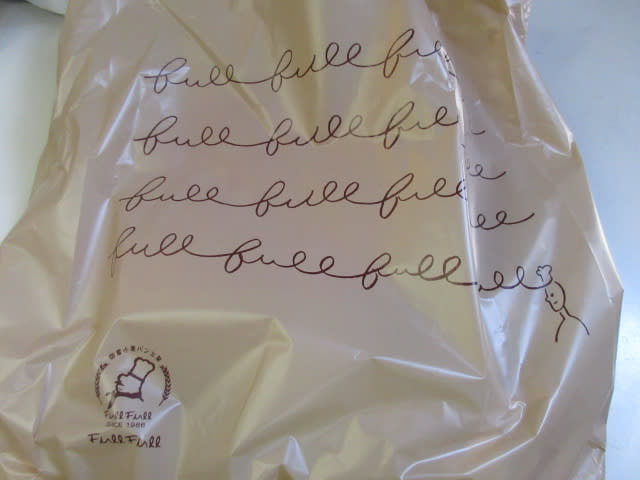 full full fu
full full full
full full full
full full full ll
国産小麦パン工房
Full Full
SINCE 1986
Full Full